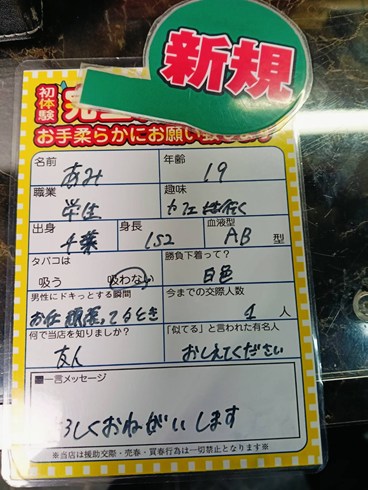 新規
初体験
お手柔らかにお願い致します
名前
あみ
年齢
19
職業
学生
趣味
カフェ行く
出身
千葉
身長
152
血液型
AB 型
タバコは
吸う 吸わない
勝負下着って?
白色
男性にドキっとする瞬間
お仕事頑張ってるとき
今までの交際人数
1 人
何で当店を知りましたか?
友人
「似てる」と言われた有名人
おしえてください
■一言メッセージ
ろしくおねがいします
※当店は援助交際・売春・買春行為は一切禁止となります※